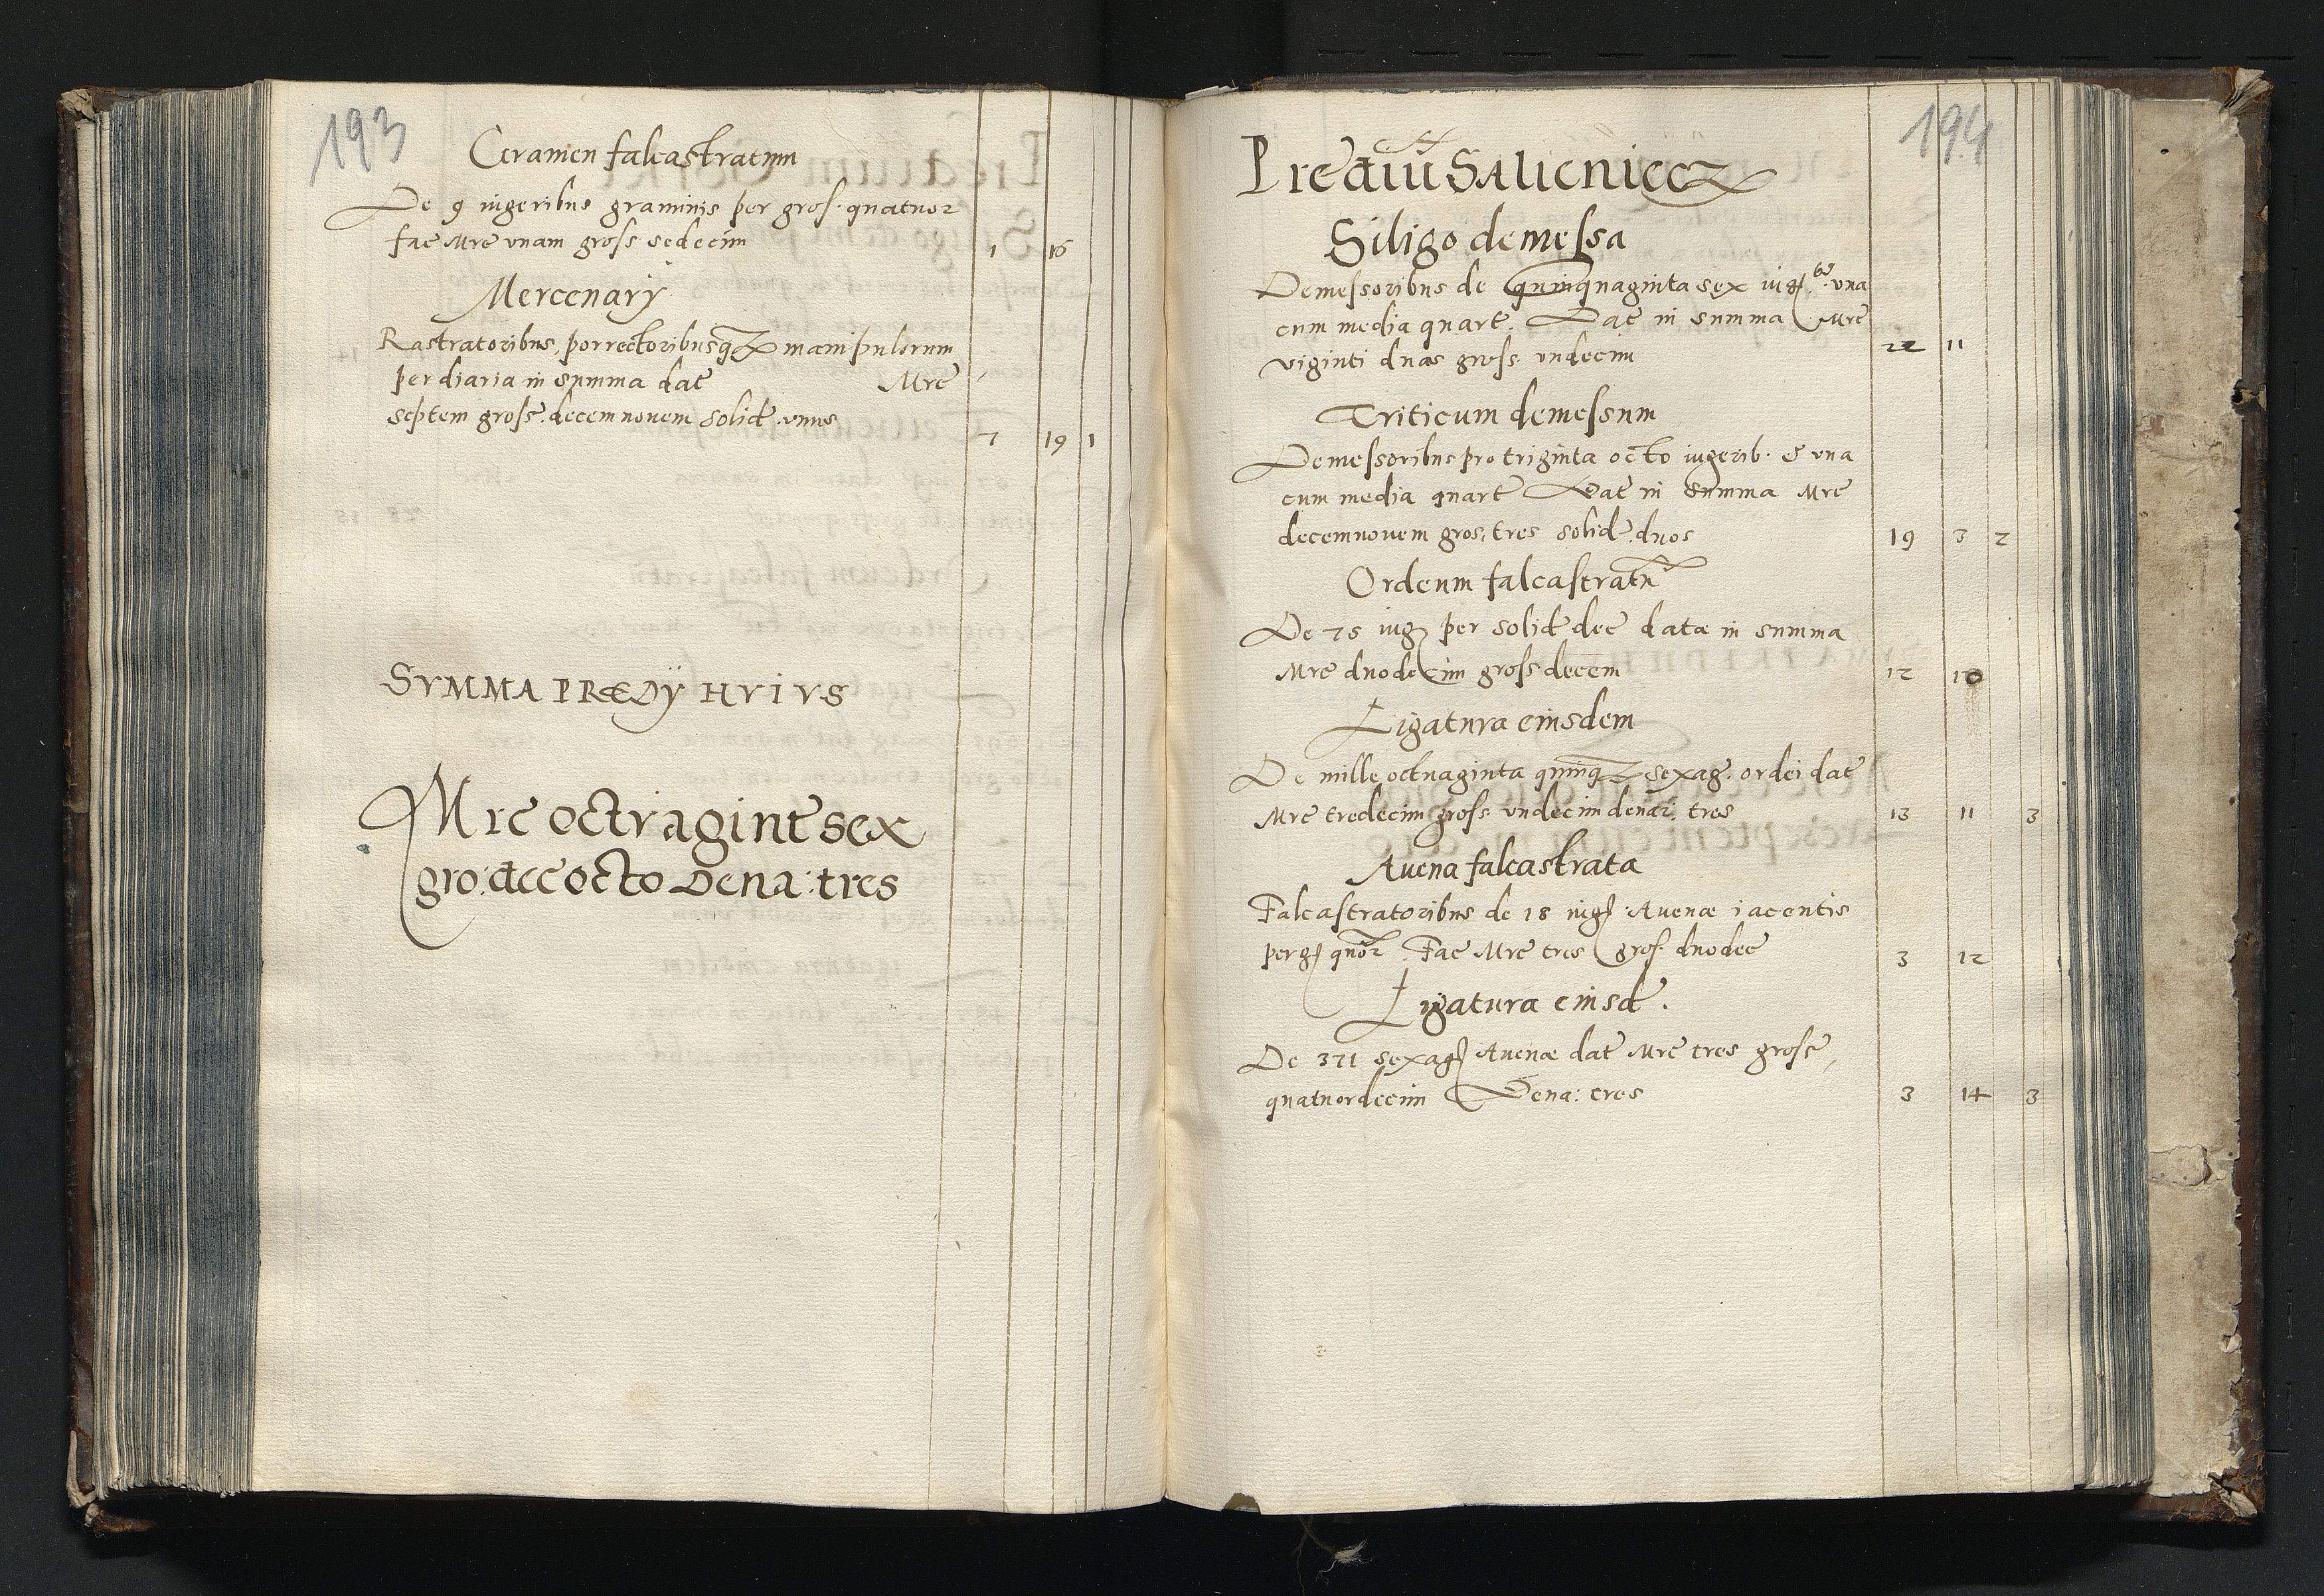 193
Gramen falcastratum
De 9 iugeribus graminis per gros. quatuor
fac Mrc vnam gross sedecim 1 16
Mercenarÿ
Rastratoribus, porrectoribusqz manipulorum
per diaria in summa dat Mrc
septem gross. decemnovem solid. vnus 7 19 1
SVMMA PREDŸ HVIVS
Mrc octvagint sex
gro: dec octo Dena: tres
194
Prediū Salicniecz
Siligo demessa
Demessoribus de quinquaginta sex iug. bꝰ. vna
cum media quart. Dat in summa Mrc
viginti duas gross vndecim 22 11
Triticum demessum
Demessoribus pro triginta octo iugerib. & vna
cum media quart Dat in summa Mrc
decemnovem gros, tres solid. duos 19 3 2
Ordeum falcastratū
De 75 iug per solid dec data in summa
Mrc duodecim gross decem 12 10
Ligatura eiusdem
De mille octuaginta quinqz sexag. ordei dat
Mrc tredecim gross vndecim denar. tres 13 11 3
Auena falcastrata
Falcastratoribus de 18 iug Auenæ iacentis
per g quor. Fac Mrc tres gros. duodec 3 12
Ligatura eiusd.
De 371 sexag Auenæ dat Mrc tres gross,
quatuordecim Dena: tres 3 14 3